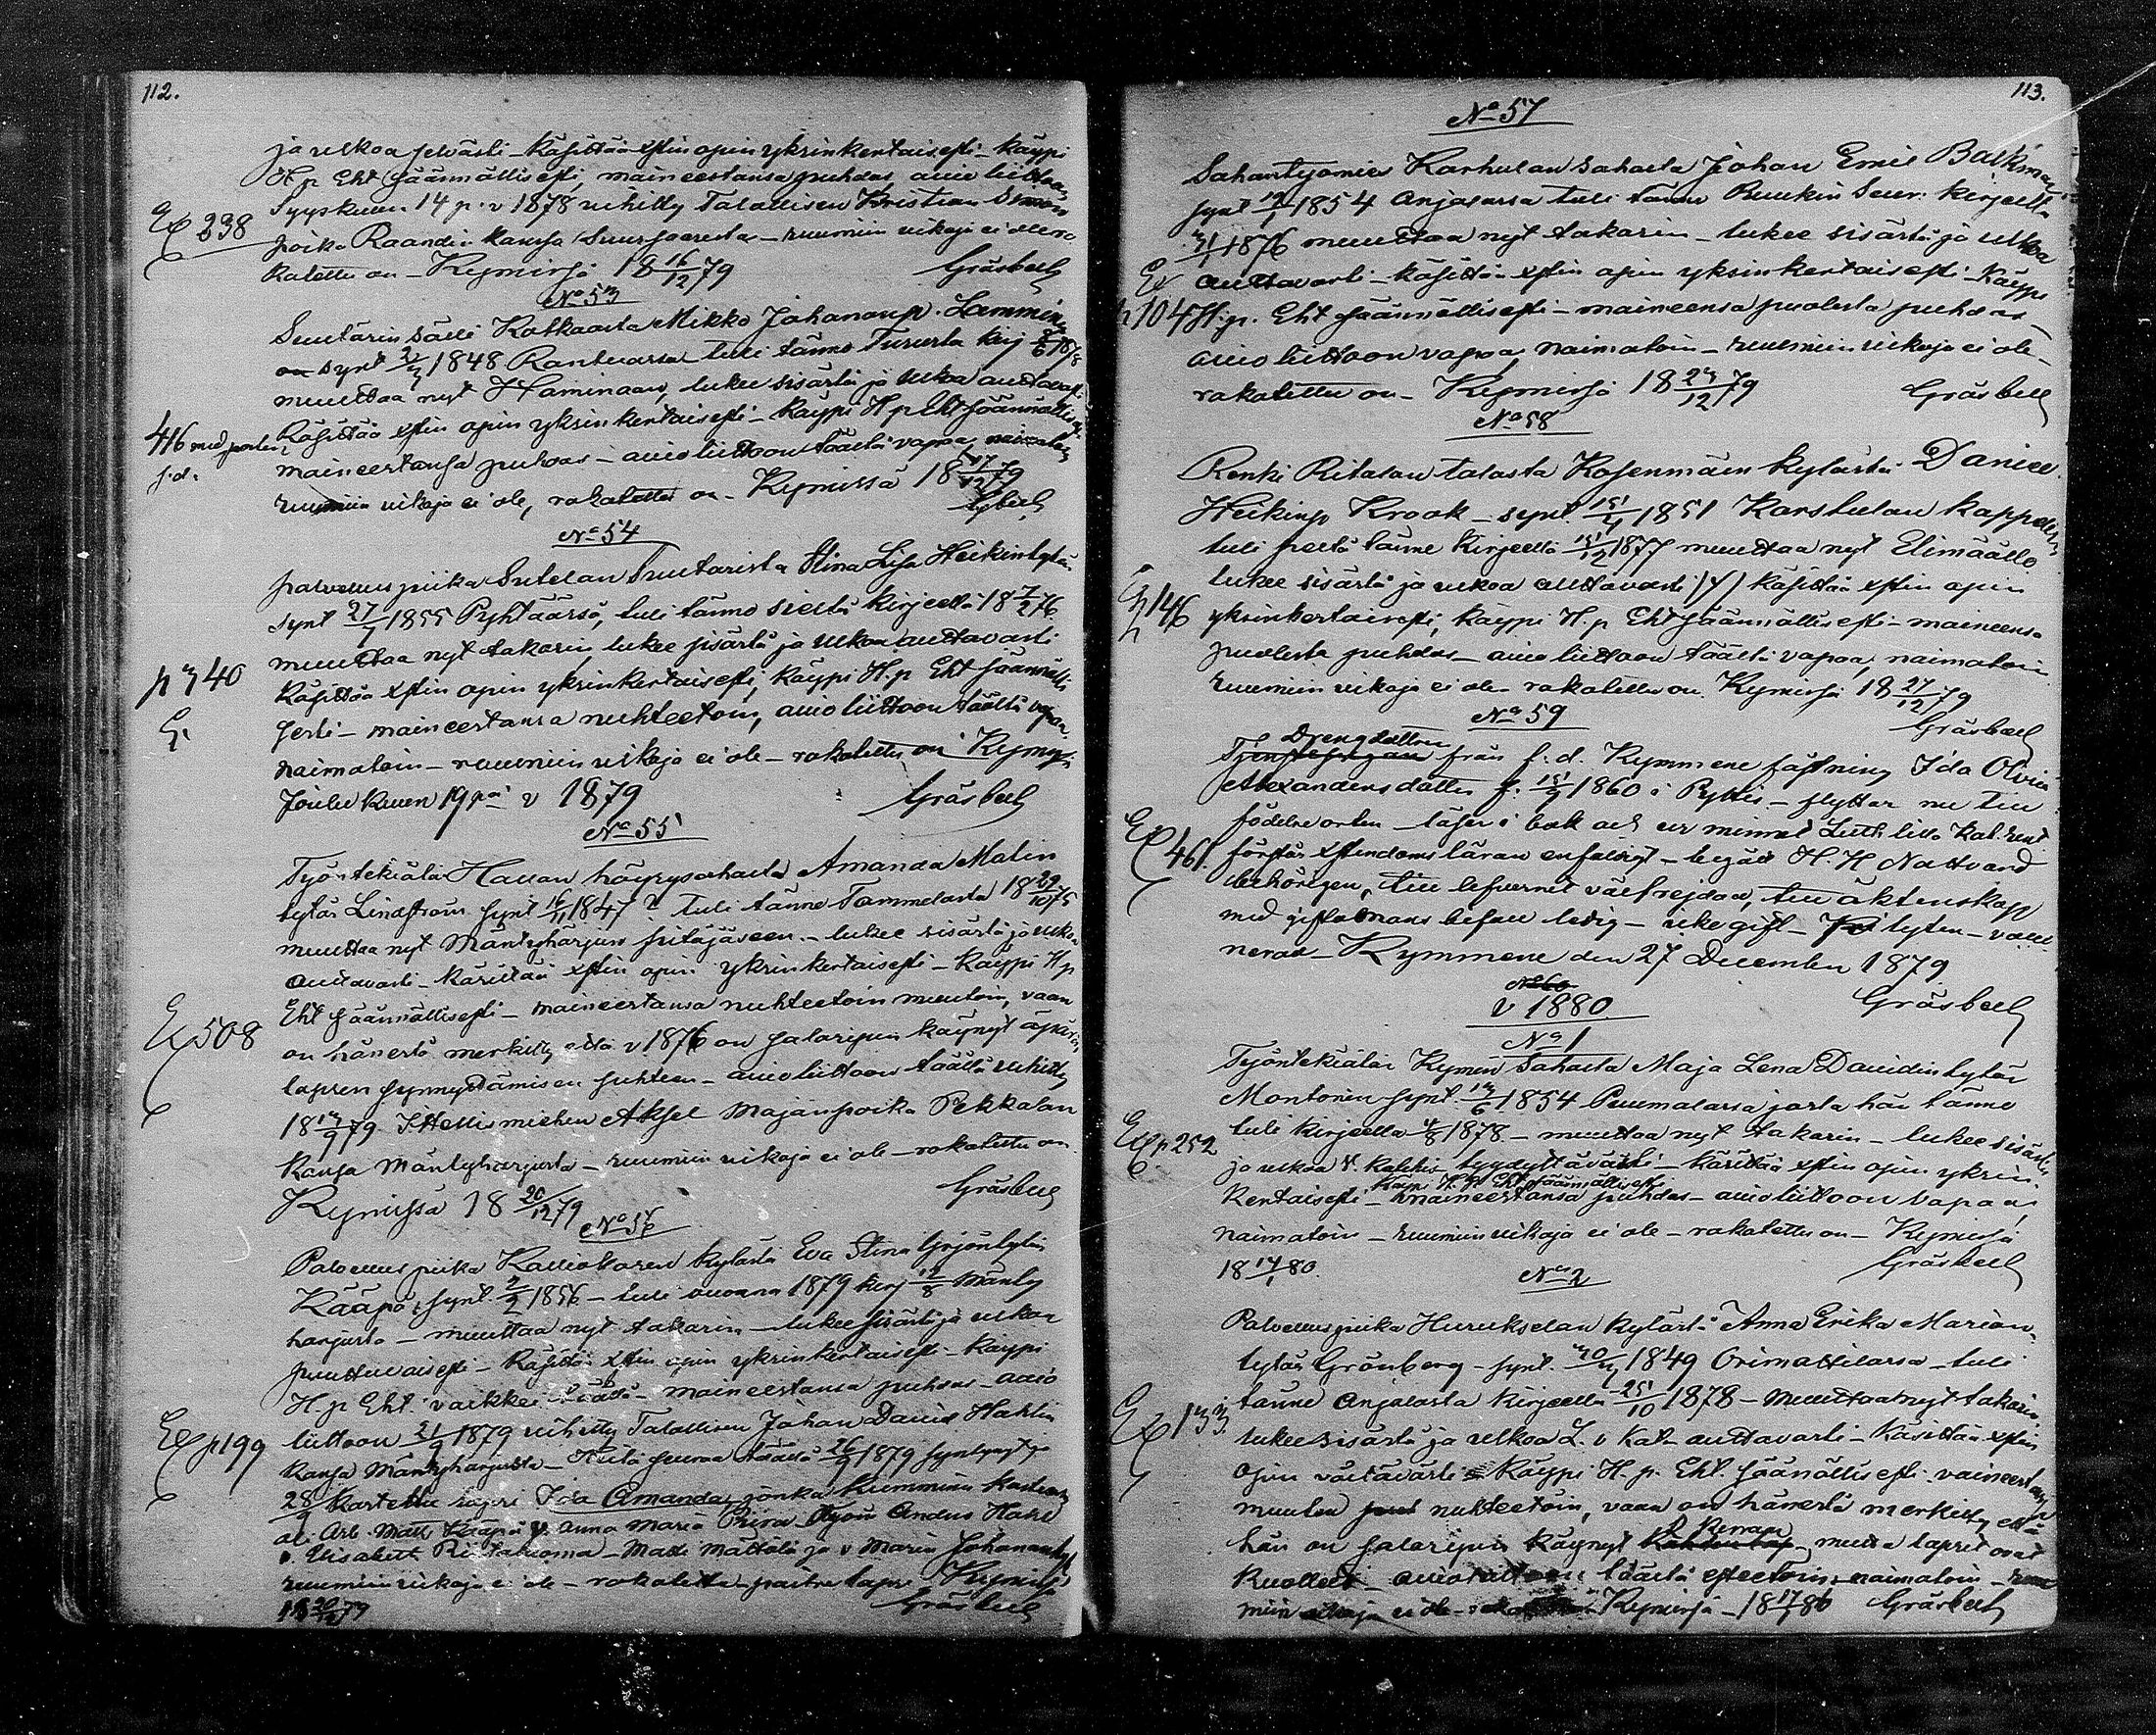 112.
ja ulkoa selvästi - käsittää xstin opin yksinkertaisesti - käypi
H. p. Eht säännällisesti, maineestansa puhdas avio liittoon
Syyskuun 14 p. v 1878 vihitty Talollisen Kristian Simon
Ex 238
poika Raandin kanssa Suursaaresta - ruumiin vikoja ei ole ro
katettu on - Kymissä 18 16/12 79
Gräsbeck
No 53
Suutarin sälli Kotkasta Mikko Johananp. Lammin
synt 2/3 1848 Rantuassa tuli tänne Turusta kirj 1878
muuttaa nyt Haminaan, lukee sisästä ja ulkoa auttavasti
416 med svartan,
s. d.
Käsittää xstin opin yksinkertaisesti - käypi H p Eht säännällis
maineestansa puhdas - avio liittoon täältä vapaa, naimatoin
ruumiin vikoja ei ole, rokotettu on - Kymissä 18 17/12 79
Gbeck
No 54
palvelus piika Sutelan Suutarista Stina Lisa Heikintytär
synt 27/7 1855 Pyhtäässä, tuli tänne sieltä kirjeellä 18 7/2 76
muuttaa nyt takasin lukee sisästä ja ulkoa auttavasti
p 340
käsittää xstin opin yksinkertaisesti, käypi H. p Eht säännälli
sesti - maineestansa nuhteetoin, avio liittoon täältä vapaa
naimatoin - ruumiin vikoja ei ole - rokotettu on Kymissä
Joulu kuun 19 pnä v 1879
Gräsbeck
No 55
Työntekiätär Hallan höyrysahasta Amanda Malin
tytär Lindström synt 16/11 1847? tuli tänne Tammelasta 18 29/10 75
muuttaa nyt Mäntyharjun pitäjäseen - lukee sisästä ja ulkoa
auttavasti - käsittää xstin opin yksinkertaisesti - käypi H p
Ex 508
Eht säännällisesti - maineestansa nuhteetoin muutoin, vaan
on hänestä merkitty että v 1876 on salaripin käynyt äpärän
lapsen synnyttämisen suhteen - avio liittoon täällä vihitty
18 13/9 79 Itsellismiehen Aksel Majanpoika Pekkalan
kanssa Mäntyharjusta - ruumiin vikoja ei ole - rokotettu on
Kymissä 18 20/12 79
Gräsbeck
No 56
Palvelus piika Kalliokosken kylästä Eva Stina Yrjöntytär
Kääpä, synt. 2/2 1856 - tuli vuonna 1879 kirj 12/8 Mänty
harjusta - muuttaa nyt takasin - lukee sisästä ja ulkoa
puuttuvaisesti - Käsittää xstin opin yksinkertaisesti - käypi
H. p Eht. vaikkei täällä - maineestansa puhdas - avio
Ex p 199
liittoon 21/9 1879 vihitty Talollisen Johan David Hahlin
kanssa Mäntyharjusta - Häntä seuraa täältä 26/9 1879 syntynyt ja
28/9 kastettu lapsi Ida Amanda, jonka kummina kasteessa
oli Arb. Matts Kääpä h. Anna Maria - Andus
o. Elisabeth - Matti Mattila ja v Maria Johanantyt,
ruumiin vikoja ei ole - rokotettu paitse lapsi Kymissä
18 20/12 79
Gräsbeck
113.
No 57
Sahantyömies Karhulan sahasta Johan Emil Balkman
synt 19/1 1854 Anjalassa tuli tänne Ruukin Seur. kirjeellä
31/1 1876 muuttaa nyt takasin - lukee sisästä ja ulkoa
Ex
p 104
auttavasti - käsittää xstin opin yksinkertaisesti - Käypi
H. p. Eht säännällisesti - maineensa puolesta puhdas
avio liittoon vapaa, naimatoin - ruumiin vikoja ei ole -
rokotettu on - Kymissä 18 23/12 79
Gräsbeck
No 58
Renki Ritalan talosta Kosenmäen kylästä Daniel
Heikinp Krook - synt. 15/4 1851 Karstulan kappelissa
tuli sieltä tänne kirjeellä 15/12 1877 muuttaa nyt Elimäälle
lukee sisästä ja ulkoa auttavasti (4) käsittää xstin opin
Ex 146
yksinkertaisesti, käypi H. p Eht säännällisesti - maineensa
puolesta puhdas - avio liittoon täältä vapaa, naimatoin
ruumiin vikoja ei ole - rokotettu on Kymissä 18 27/12 79
Gräsbeck
No 59
Drengdottren
Tjenstepigan från f. d. Kymmene fästning Ida Olivia
Alexandersdotter f. 15/9 1860 i Pyttis - flyttar nu till
födelse orten - läser i bok och ur minnet Luth lilla Kat.
Ex 461.
förstår xstendoms läran enfaldigt - begått H. H Nattvard
behörigen, till lefvernet välfrejdad, till äktenskap
med giftomans befall ledig - icke gift - fri lyten - vacci
nerad - Kymmene den 27 December 1879
Gräsbeck
No 60
v 1880
No 1
Työntekiätär Kymin Sahasta Maja Lena Davidintytär
Montonen synt. 13/6 1854 Puumalassa josta hän tänne
Ex p 252
tuli kirjeellä 4/8 1878 - muuttaa nyt takasin - lukee sisästä
ja ulkoa v. Katekis tyydyttävästi - käsittää xstin opin yksin
käypi H. p. Eht säännällisesti
kertaisesti - maineestansa puhdas - avio liittoon vapaa,
naimatoin - ruumiin vikoja ei ole - rokotettu on - Kymissä
18 14/1 80.
Gräsbeck
No 2
Palvelus piika Hurukselan kylästä Anna Erika Marian
tytär Grönberg - synt. 30/3 1849 Orimattilassa - tuli
Ex 133
tänne Anjalasta kirjeellä 25/10 1878 - Muuttaa nyt takasin
lukee sisästä ja ulkoa L. v Kat - auttavasti - Käsittää xstin
opin välttävästi - Käypi H. p. Eht. säännällisesti - maineestansa
muuten nuhteetoin, vaan on hänestä merkitty että
2 kerran
hän on salaripin käynyt - mutta lapset ovat
kuolleet - avioliittoon täältä esteetoin - naimatoin - ruu
miin vikoja ei ole - Kymissä - 18 17/1 80 Gräsbeck